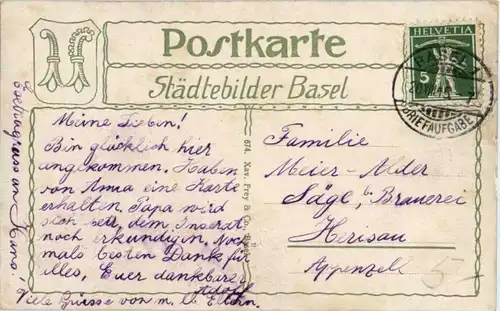 Postkarte
Städtebilder Basel
HELVETIA
5
BASEL
BRIEFAUFGABE
Meine Lieben!
Bin glücklich hier
angekommen. Haben
von Anna eine Karte
erhalten. Papa wird
sich betr. dem Inserat
noch erkundigen. Noch
mals besten Dank für
alles, Euer dankbarer
Adolf
Viele Grüsse von m. lb. Eltern.
674. Xav. Frey & Co.
Familie
Meier-Alder
Säge, b. Brauerei
Herisau
Appenzell
5